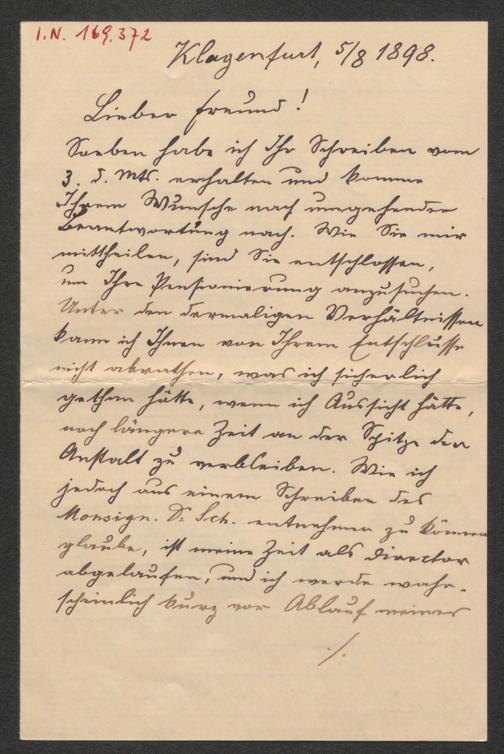 I.N. 169.372
Klagenfurt, 5/8 1898.
Lieber Freund!
Soeben habe ich Ihr Schreiben vom
3. d. Mts. erhalten und komme
Ihrem Wunsche nach umgehender
Beantwortung nach. Wie Sie mir
mittheilen, sind Sie entschlossen,
um Ihre Pensionierung anzusuchen.
Unter den dermaligen Verhältnissen
kann ich Ihnen von Ihrem Entschlusse
nicht abrathen, was ich sicherlich
gethan hätte, wenn ich Aussicht hätte,
noch längere Zeit an der Spitze der
Anstalt zu verbleiben. Wie ich
jedoch aus einem Schreiben des
Monsign. Dr. Sch. entnehmen zu können
glaube, ist meine Zeit als Director
abgelaufen, und ich werde wahr-
scheinlich kurz vor Ablauf meines
./.